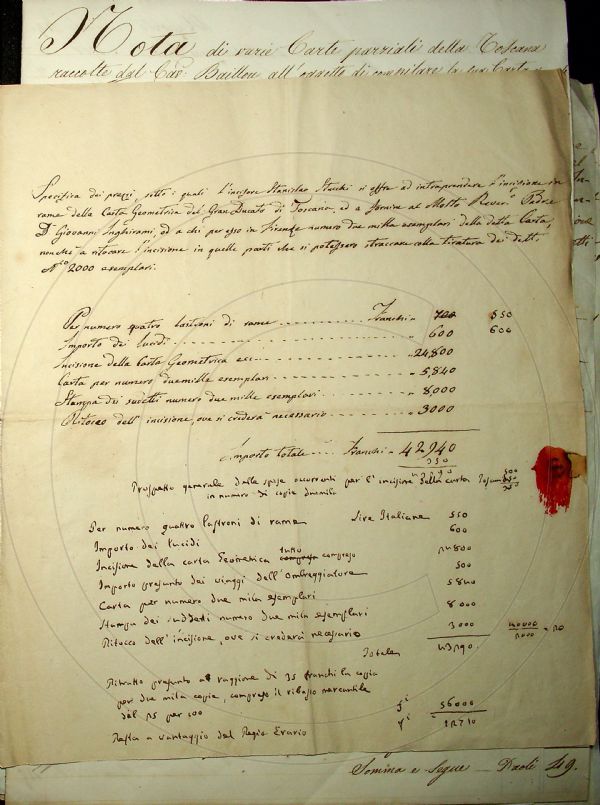 Nota di varie Carte parziali della Toscana
raccolte dal Cav. Baillou all'oggetto di compilare la sua Carta
Specifica dei prezzi, sotto i quali l'incisore Stanislao Stucchi si offre ad intraprendere l'incisione in
rame della Carta Geometrica del Gran Ducato di Toscana, ed a fornire al Molto Rever. Padre
D. Giovanni Inghirami, ed a chi per esso in Firenze numero due mille esemplari della detta Carta,
nonchè a ritoccare l'incisione in quelle parti che si potessero straccare colla tiratura dei detti
N.ro 2000 esemplari.
Per numero quattro lastroni di rame Franchi " 720 550
Importo dei lucidi " 600 600
Incisione della Carta Geometrica " 24,800
Carta per numero due mille esemplari " 5,840
Stampa dei suddetti numero due mille esemplari " 8,000
Ritocco dell'incisione, ove si crederà necessario " 3000
Importo totale Franchi " 42940
Prospetto generale delle spese occorrenti per l'incisione della carta
in numero di copie duemila
Per numero quattro lastroni di rame Lire Italiane 550
Importo dei lucidi 600
Incisione della carta Geometrica tutto compreso 24800
Importo presunto dei viaggi dell'ombreggiatore 500
Carta per numero due mila esemplari 5840
Stampa dei suddetti numero due mila esemplari 8000
Ritocco dell'incisione, ove si crederà necessario 3000
Totale 43290
Ritratto presunto a raggione di 35 franchi la copia
per due mila copie, compreso il ribasso mercantile
del 25 per 100 56000
Resta a vantaggio del Regio Erario 12710
Somma e Segue Paoli 49.